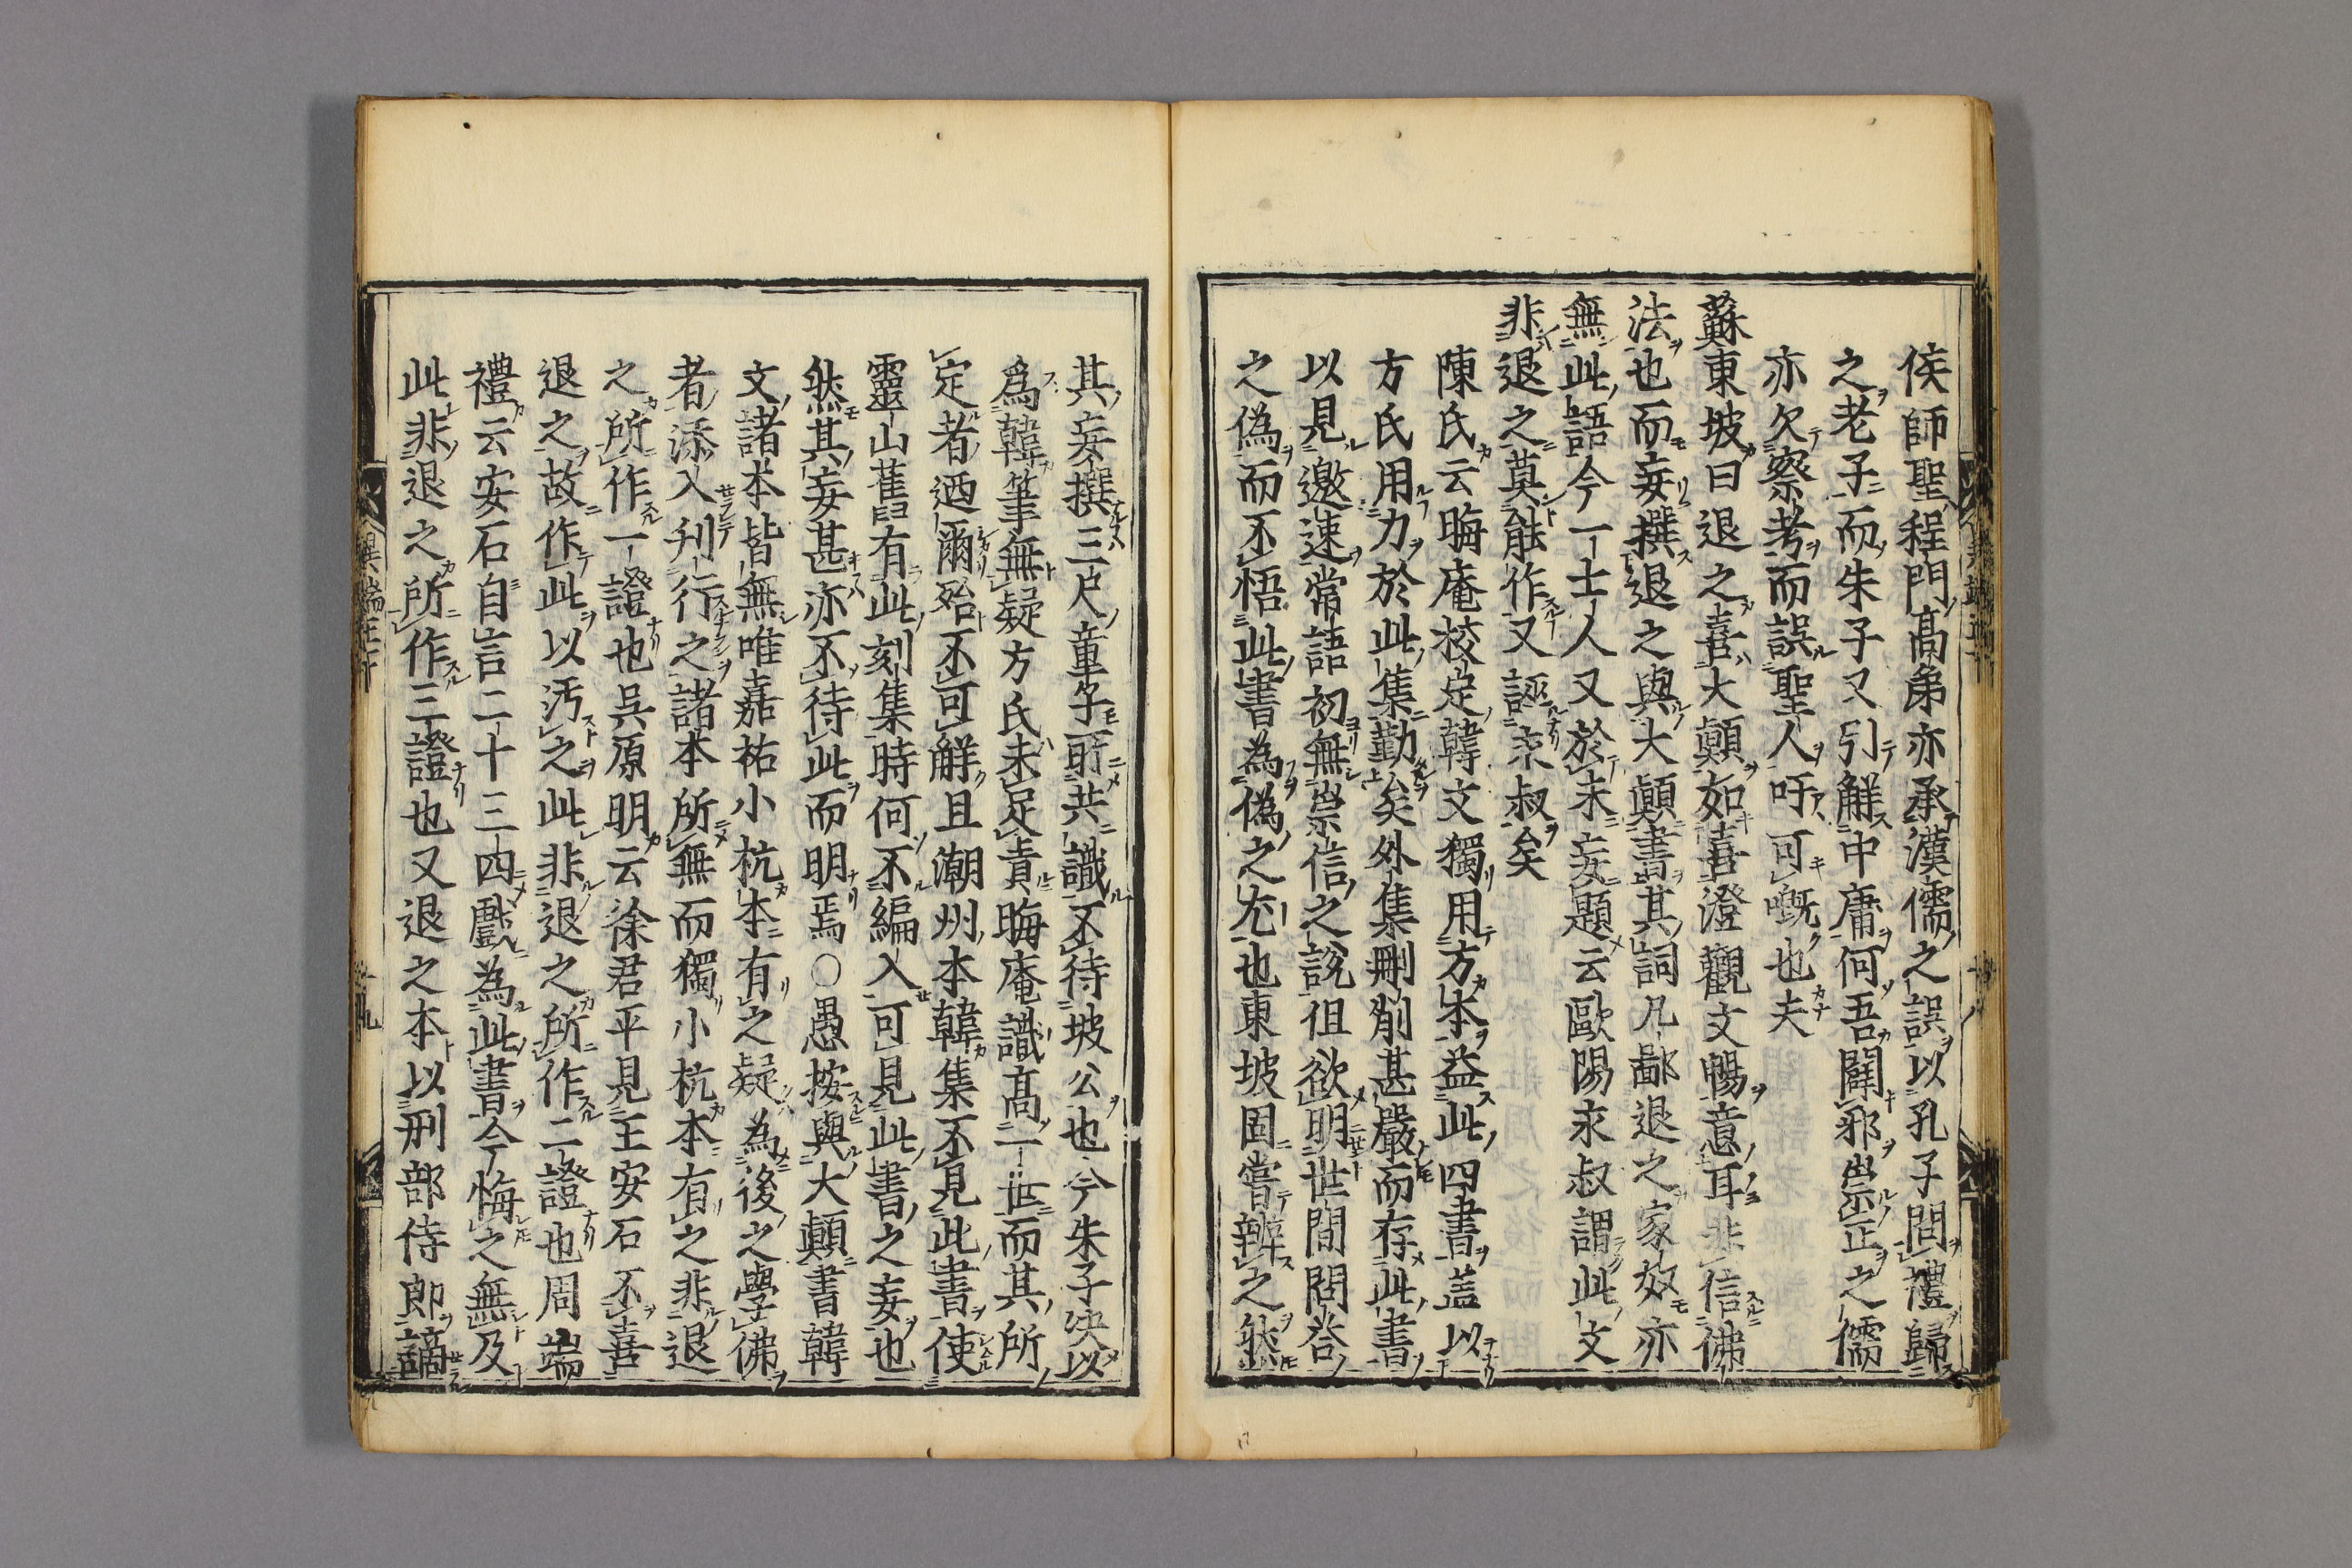 侯師聖程門高弟亦承漢儒之誤以孔子問禮歸
之老子而朱子又引觧中庸何吾闢邪崇正之儒
亦欠察考而誤聖人吁可嘅也夫
蘇東坡曰退之喜大顛如喜澄觀文暢意耳非信佛
法也而妄撰退之與大顛書其詞凡鄙退之家奴亦
無此語今一士人又於末妄題云歐陽永叔謂此文
非退之莫能作又誣永叔矣
陳氏云晦庵校定韓文獨用方本益此四書盖以
方氏用力於此集勤矣外集刪削甚嚴而存此書
以見邀速常語初無崇信之說但欲明世間問答
之偽而不悟此書為偽之尤也東坡固嘗辨之然
其妄撰三尺童子所共識不待坡公也今朱子決以
爲韓筆無疑方氏未足責晦庵識高一世而其所
定者廼爾殆不可觧且潮州本韓集不見此書使
靈山舊有此刻集時何不編入可見此書之妄也
然其妄甚亦不待此而明焉○愚按與大顛書韓
文諸本皆無唯嘉祐小杭本有之疑為後之學佛
者添入刋行之諸本所無而獨小杭本有之非退
之所作一證也呉原明云徐君平見王安石不喜
退之故作此以汚之此非退之所作二證也周端
禮云安石自言二十三四戲為此書今悔之無及
此非退之所作三證也又退之本以刑部侍郎謫
異端王十